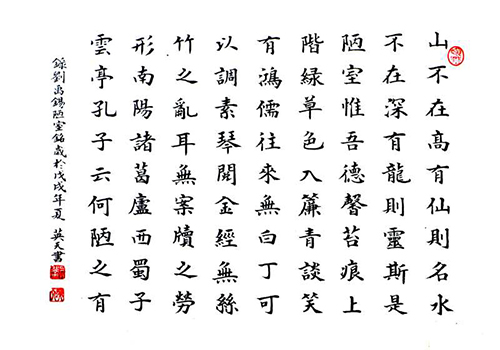 山不在高有仙則名水
不在深有龍則靈斯是
陋室惟吾德馨苔痕上
階綠草色入簾青談笑
有鴻儒往來無白丁可
以調素琴閱金經無絲
竹之亂耳無案牘之勞
形南陽諸葛廬西蜀子
雲亭孔子云何陋之有
錄劉禹錫陋室銘歲於戊戌年夏 英天書